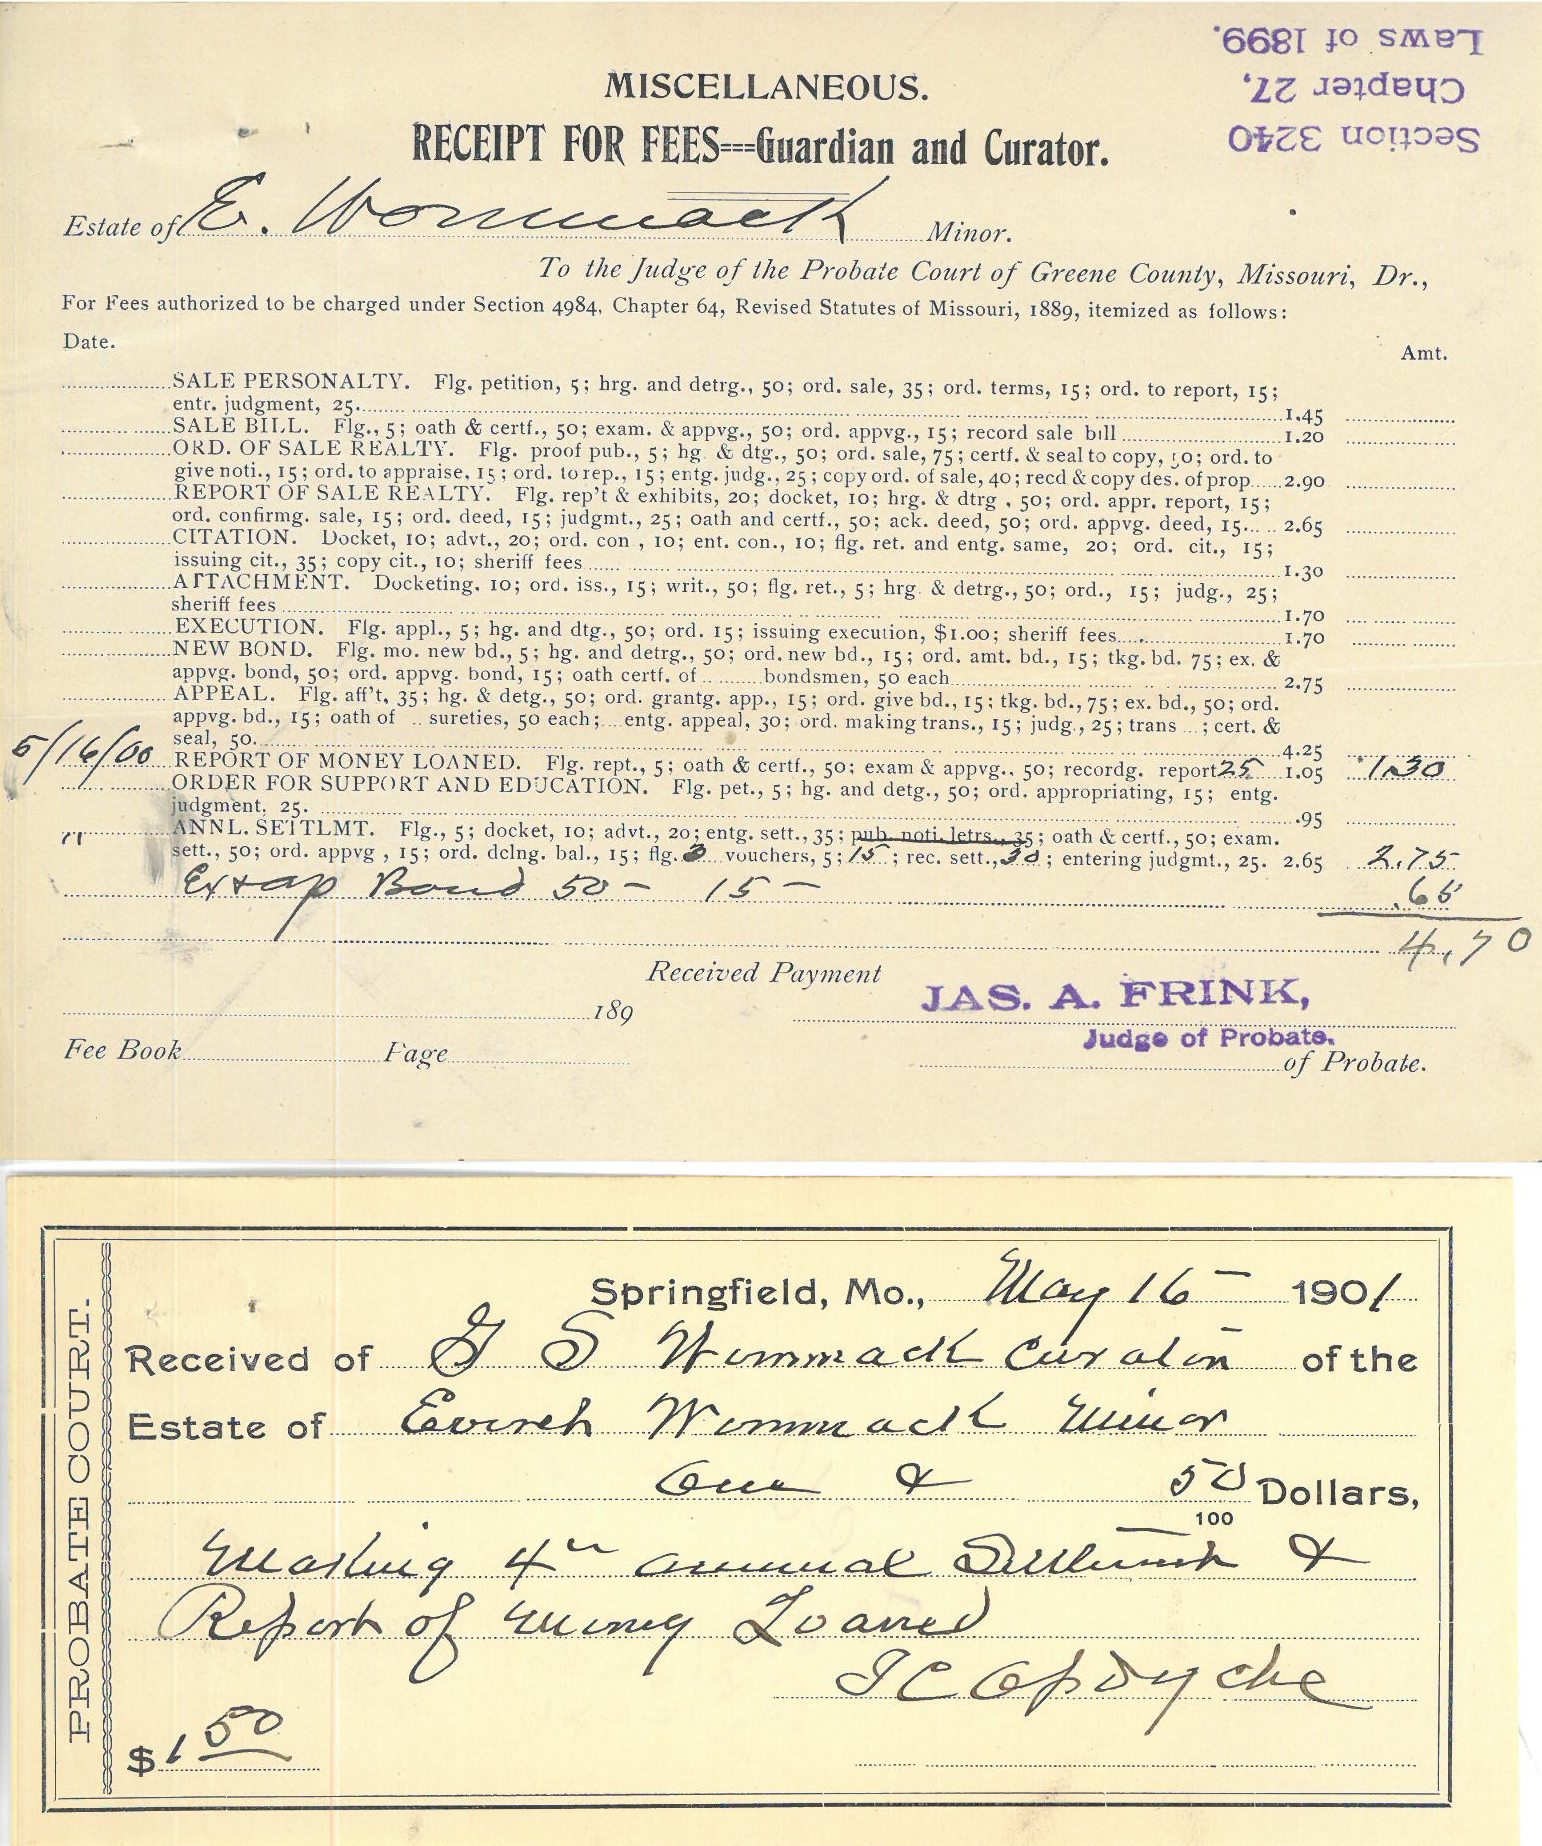 Laws of 1899.
Chapter 27,
Section 3240
MISCELLANEOUS.
RECEIPT FOR FEES===Guardian and Curator.
Estate of E. Wommack Minor.
To the Judge of the Probate Court of Greene County, Missouri, Dr.,
For Fees authorized to be charged under Section 4984, Chapter 64, Revised Statutes of Missouri, 1889, itemized as follows:
Date.
Amt.
SALE PERSONALTY. Flg. petition, 5; hrg. and detrg., 50; ord. sale, 35; ord. terms, 15; ord. to report, 15;
entr. judgment, 25. 1.45
SALE BILL. Flg., 5; oath & certf., 50; exam. & appvg., 50; ord. appvg., 15; record sale bill 1.20
ORD. OF SALE REALTY. Flg. proof pub., 5; hg. & dtg., 50; ord. sale, 75; certf. & seal to copy, 50; ord. to
give noti., 15; ord. to appraise, 15; ord. to rep., 15; entg. judg., 25; copy ord. of sale, 40; recd & copy des. of prop. 2.90
REPORT OF SALE REALTY. Flg. rep't & exhibits, 20; docket, 10; hrg. & dtrg., 50; ord. appr. report, 15;
ord. confirmg. sale, 15; ord. deed, 15; judgmt., 25; oath and certf., 50; ack. deed, 50; ord. appvg. deed, 15. 2.65
CITATION. Docket, 10; advt., 20; ord. con., 10; ent. con., 10; flg. ret. and entg. same, 20; ord. cit., 15;
issuing cit., 35; copy cit., 10; sheriff fees 1.30
ATTACHMENT. Docketing, 10; ord. iss., 15; writ., 50; flg. ret., 5; hrg. & detrg., 50; ord., 15; judg., 25;
sheriff fees 1.70
EXECUTION. Flg. appl., 5; hg. and dtg., 50; ord. 15; issuing execution, $1.00; sheriff fees 1.70
NEW BOND. Flg. mo. new bd., 5; hg. and detrg., 50; ord. new bd., 15; ord. amt. bd., 15; tkg. bd. 75; ex. &
appvg. bond, 50; ord. appvg. bond, 15; oath certf. of bondsmen, 50 each 2.75
APPEAL. Flg. aff't, 35; hg. & detg., 50; ord. grantg. app., 15; ord. give bd., 15; tkg. bd., 75; ex. bd., 50; ord.
appvg. bd., 15; oath of sureties, 50 each; entg. appeal, 30; ord. making trans., 15; judg., 25; trans ; cert. &
seal, 50. 4.25
5/16/00 REPORT OF MONEY LOANED. Flg. rept., 5; oath & certf., 50; exam & appvg., 50; recordg. report 25 1.05 1.30
ORDER FOR SUPPORT AND EDUCATION. Flg. pet., 5; hg. and detg., 50; ord. appropriating, 15; entg.
judgment, 25. .95
" ANNL. SETTLMT. Flg., 5; docket, 10; advt., 20; entg. sett., 35; pub. noti. letrs., 35; oath & certf., 50; exam.
sett., 50; ord. appvg., 15; ord. dclng. bal., 15; flg. 3 vouchers, 5; 15; rec. sett., 30; entering judgmt., 25. 2.65 2.75
Ex & ap Bond 50 – 15 – .65
4.70
Received Payment
JAS. A. FRINK,
189
Judge of Probate.
Fee Book Page of Probate.
PROBATE COURT.
Springfield, Mo., May 16 – 1901
Received of G S Wommack Curator of the
Estate of Everett Wommack Minor
One & 50/100 Dollars,
Making 4th annual Settlement &
Report of Money Loaned
T C Opdyche
$1 50